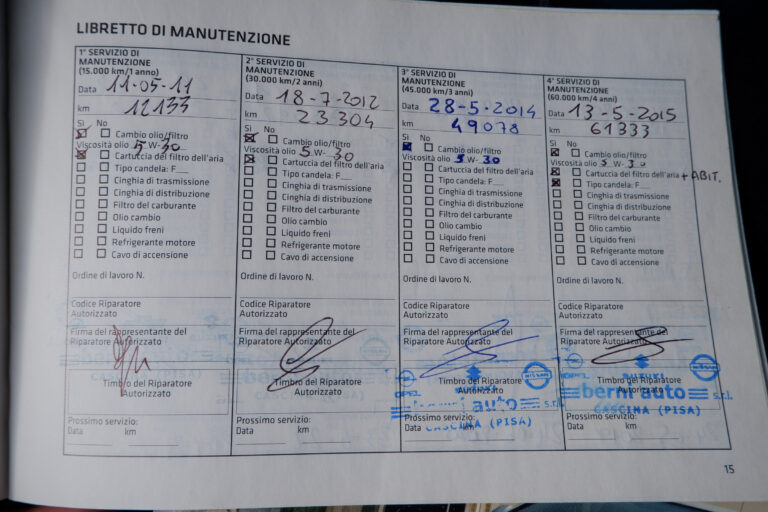 LIBRETTO DI MANUTENZIONE
1° SERVIZIO DI
MANUTENZIONE
(15.000 km/1 anno)
Data 11-05-11
km 12133
Sì No
Cambio olio/filtro
Viscosità olio 5 W-30
Cartuccia del filtro dell'aria
Tipo candela: F__
Cinghia di trasmissione
Cinghia di distribuzione
Filtro del carburante
Olio cambio
Liquido freni
Refrigerante motore
Cavo di accensione
Ordine di lavoro N.
Codice Riparatore
Autorizzato
Firma del rappresentante del
Riparatore Autorizzato
Timbro del Riparatore
Autorizzato
CASCINA (PISA)
Prossimo servizio:
Data km
2° SERVIZIO DI
MANUTENZIONE
(30.000 km/2 anni)
Data 18-7-2012
km 23304
Sì No
Cambio olio/filtro
Viscosità olio 5 W-30
Cartuccia del filtro dell'aria
Tipo candela: F__
Cinghia di trasmissione
Cinghia di distribuzione
Filtro del carburante
Olio cambio
Liquido freni
Refrigerante motore
Cavo di accensione
Ordine di lavoro N.
Codice Riparatore
Autorizzato
Firma del rappresentante del
Riparatore Autorizzato
Timbro del Riparatore
Autorizzato
berni auto
CASCINA (PISA)
Prossimo servizio:
Data km
3° SERVIZIO DI
MANUTENZIONE
(45.000 km/3 anni)
Data 28-5-2014
km 49078
Sì No
Cambio olio/filtro
Viscosità olio 5 W-30
Cartuccia del filtro dell'aria
Tipo candela: F__
Cinghia di trasmissione
Cinghia di distribuzione
Filtro del carburante
Olio cambio
Liquido freni
Refrigerante motore
Cavo di accensione
Ordine di lavoro N.
Codice Riparatore
Autorizzato
Firma del rappresentante del
Riparatore Autorizzato
Timbro del Riparatore
Autorizzato
OPEL SUZUKI NISSAN
auto s.r.l.
CASCINA (PISA)
Prossimo servizio:
Data km
4° SERVIZIO DI
MANUTENZIONE
(60.000 km/4 anni)
Data 13-5-2015
km 61333
Sì No
Cambio olio/filtro
Viscosità olio 5 W-30
Cartuccia del filtro dell'aria + ABIT.
Tipo candela: F__
Cinghia di trasmissione
Cinghia di distribuzione
Filtro del carburante
Olio cambio
Liquido freni
Refrigerante motore
Cavo di accensione
Ordine di lavoro N.
Codice Riparatore
Autorizzato
Firma del rappresentante del
Riparatore Autorizzato
Timbro del Riparatore
Autorizzato
OPEL SUZUKI NISSAN
berni auto s.r.l.
CASCINA (PISA)
Prossimo servizio:
Data km
15